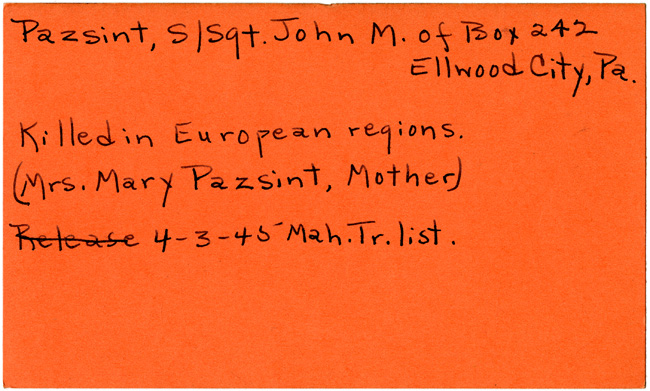 Pazsint, S/Sgt. John M. of Box 242
Ellwood City, Pa.
Killed in European regions.
(Mrs. Mary Pazsint, Mother)
Release 4-3-45 Mah. Tr. list.